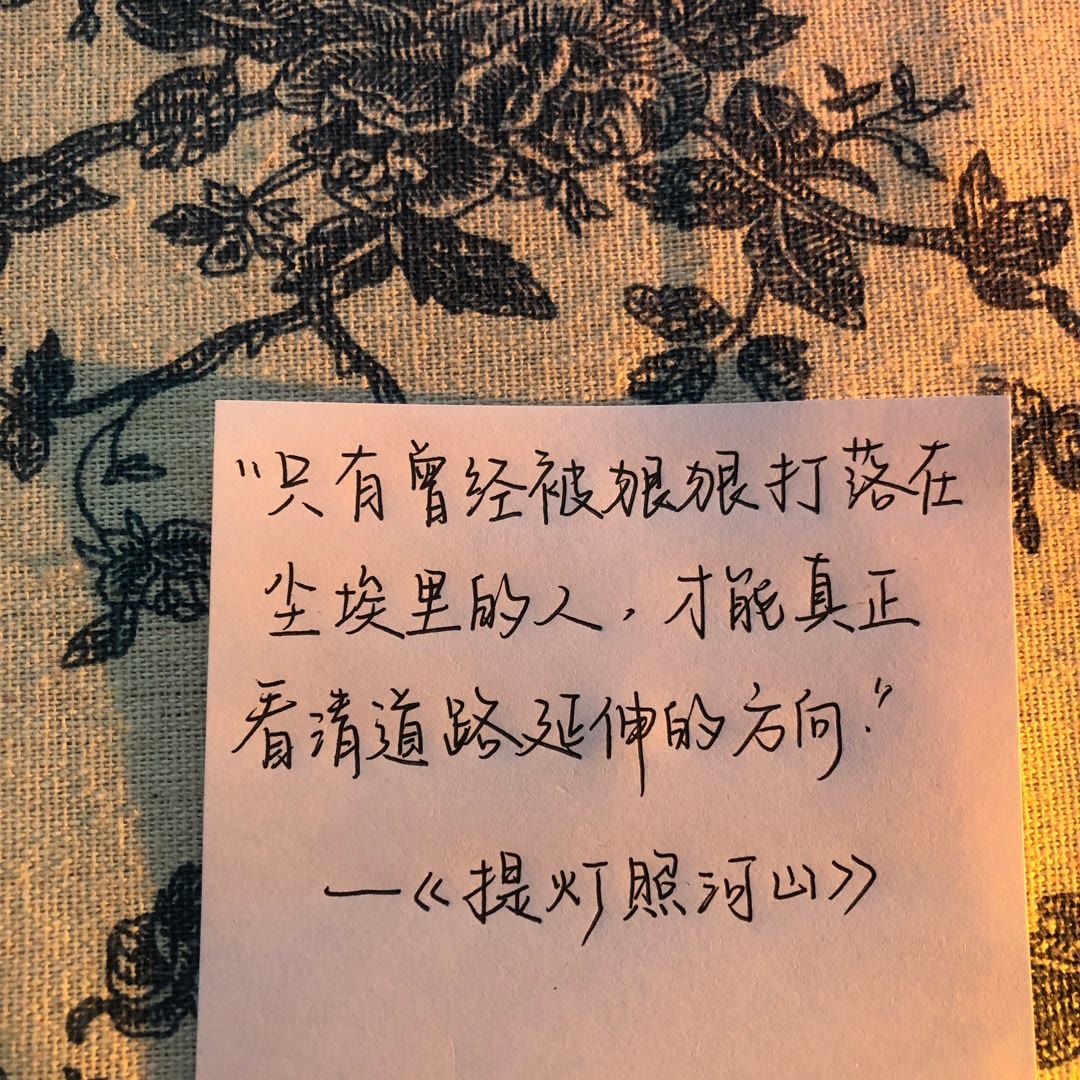 “只有曾经被狠狠打落在
尘埃里的人，才能真正
看清道路延伸的方向.”
—《提灯照河山》